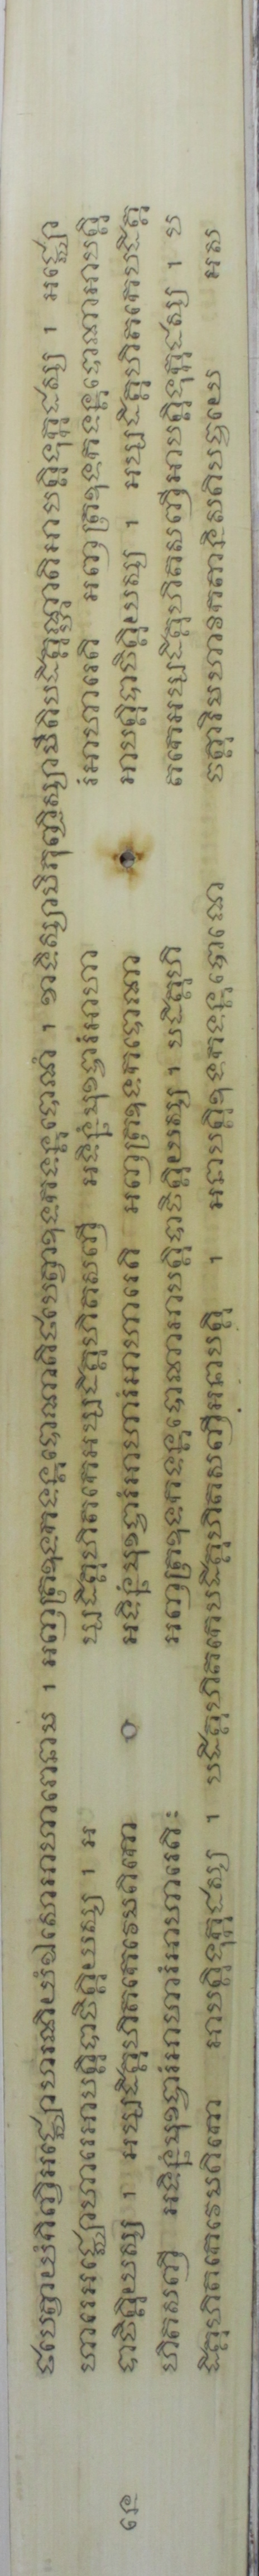 ឋបេត្វាយំកិញ្ចិអជ្ឈោហរណិយំឯសោអាហារោនាម ។ អញត្រឧទកទន្តបោណាតិឋបេត្វាឧទកទន្តបោណំ ។ ខាទិស្សាមិភុញ្ជិស្សាមីតិបដិគ្គណ្ហាតិអាបត្តិទុក្កដស្ស ។ អជ្ឈោ
ហារេអជ្ឈោហារេអាបត្តិបាចិត្តិយស្ស ។ អ ប្បដិគ្គហិតកេអប្បដិគ្គហិតសញី អទិន្នំមុខទ្វារំអាហា រំអាហារេតិ អញត្រឧទកទន្តបោណាអាបត្តិ
បាចិត្តិយស្ស ។ អប្បដិគ្គហិតកេវេមតិកោ អទិន្នំមុខទ្វារំអាហារំអាហារេតិ អញត្រឧទកបោណា អាបត្តិបាចិត្តិយស្ស ។ អប្បដិគ្គហិតកេបដិគ្គ
ហិតសញី អទិន្នំមុខទ្វារំអាហារំអាហារេតិ អញត្រឧទកទន្តបោណាអាបត្តិបាចិត្តិយស្ស ។ បដិគ្គហិ តកេអប្បដិគ្គហិតសញីអាបត្តិទុក្កដស្ស ។ ប
ដិគ្គហិតកេវេមតិកោ អាបត្តិទុក្កដស្ស ។ បដិគ្គហិតកេបដិគ្គហិតសញីអនាបត្តិ ។ អនាបត្តិឧទកទន្តបោណេ ចត្តារិមហាវកតានិសតិបច្ចយេ អស